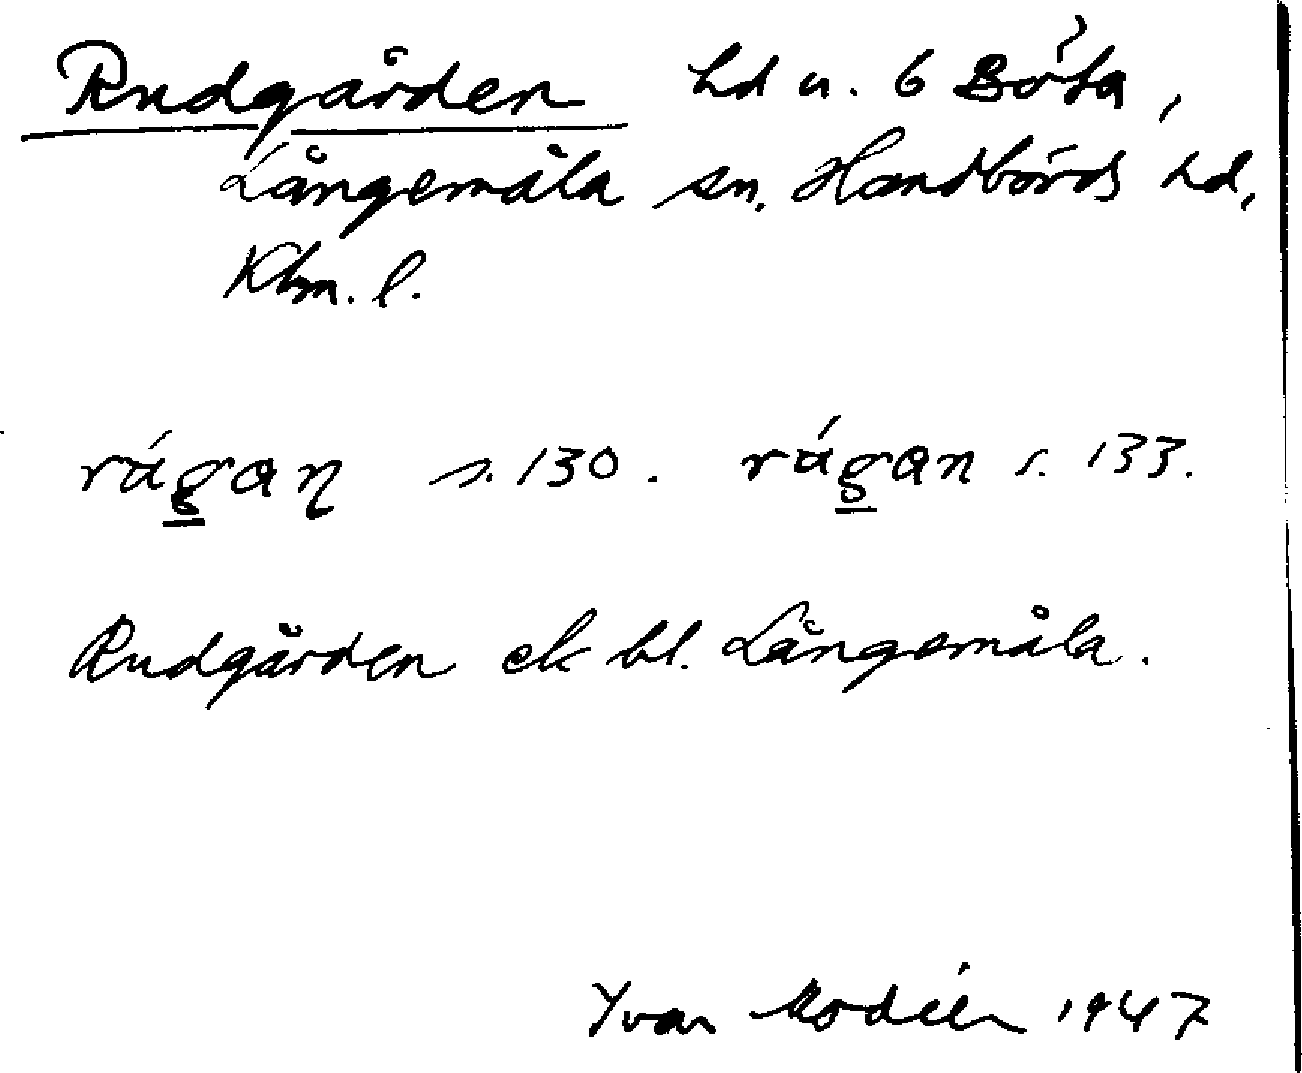 Rudgården hd u. 6 Böta,
Långemåla sn. Handbörds hd,
Klm. l.
rágan s. 130. rágan s. 133.
Rudgården ek bl. Långemåla.
Yvar Modéer 1947